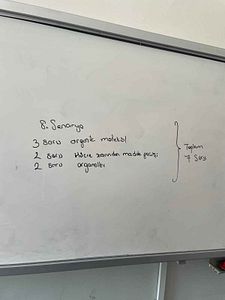 8. Senaryo
3 soru organik molekül
2 soru Hücre zarından madde geçişi
2 soru organeller
Toplam
7 Soru